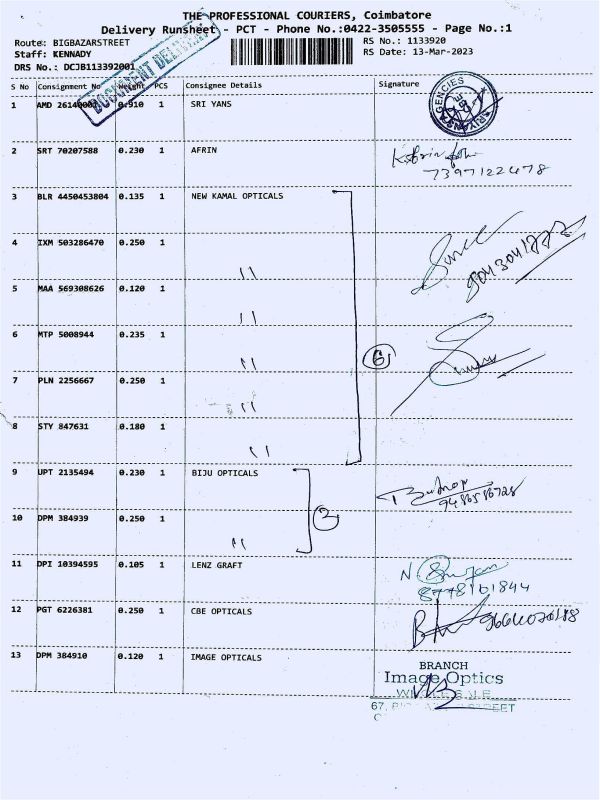 THE PROFESSIONAL COURIERS, Coimbatore
Delivery Runsheet - PCT - Phone No.:0422-3505555 - Page No.:1
Route: BIGBAZARSTREET RS No.: 1133920
Staff: KENNADY RS Date: 13-Mar-2023
DRS No.: DCJB113392001
DOCUMENT DELIVERY
S No Consignment No Weight PCS Consignee Details Signature
1 AMD 26140001 0.910 1 SRI YANS
AGENCIES
2 SRT 70207588 0.230 1 AFRIN
7397122478
3 BLR 4450453804 0.135 1 NEW KAMAL OPTICALS
4 IXM 503286470 0.250 1
"
5 MAA 569308626 0.120 1
"
6 MTP 5008944 0.235 1
" 6
7 PLN 2256667 0.250 1
"
8 STY 847631 0.180 1
"
9 UPT 2135494 0.230 1 BIJU OPTICALS
10 DPM 384939 0.250 1
" 2
11 DPI 10394595 0.105 1 LENZ GRAFT
8778101844
12 PGT 6226381 0.250 1 CBE OPTICALS
13 DPM 384910 0.120 1 IMAGE OPTICALS
BRANCH
Image Optics
67,